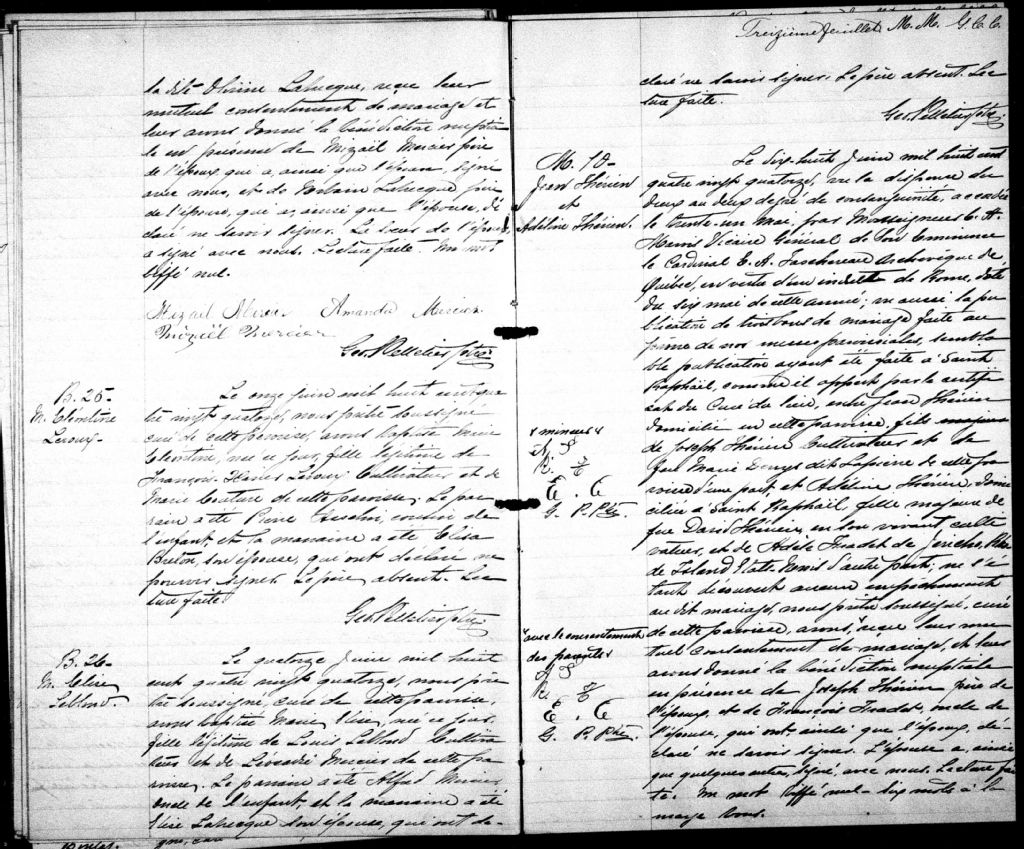 la dite Labrecque, reçu leur
mutuel consentement de mariage et
leur avons donné la bénédiction nuptia
le en présence de Mizaël Mercier père
de l'époux, qui a, ainsi que l'époux, signé
avec nous, et de Labrecque père
de l'épouse, qui a, ainsi que l'épouse, dé
claré ne savoir signer. La soeur de l'époux
a signé avec nous. Lecture faite. Un mot
biffé nul.
Mizael Mercier Amanda Mercier
Mizaël Mercier
Geo. Pelletier, Ptre
B. 25-
M. Clémentine
Leroux-
Le onze Juin mil huit cent qua
tre vingt quatorze, nous prêtre soussigné
curé de cette paroisse, avons baptisé Marie
Clémentine, née ce jour, fille légitime de
François-Xavier Leroux Cultivateur et de
Marie Couture de cette paroisse. Le par
rain a été Pierre Asselin, cousin de
l'enfant, et la marraine a été Elisa
Breton, son épouse, qui ont déclaré ne
pouvoir signer. Le père absent. Lec
ture faite.
Geo. Pelletier, Ptre
B. 26-
M. Elise
Leblond.
Le quatorze Juin mil huit
cent quatre vingt quatorze, nous prê
tre soussigné, curé de cette paroisse,
avons baptisé Marie Elise, née ce jour,
fille légitime de Louis Leblond Cultiva
teur et de Léocadie Mercier de cette pa
roisse. Le parrain a été Alfred Mercier
oncle de l'enfant, et la marraine a été
Elise Labrecque son épouse, qui ont dé-
Treizième feuillet M. M. G. C. C.
claré ne savoir signer. Le père absent. Lec
ture faite.
Geo. Pelletier, Ptre.
M. 10-
Jean Thérien
et
Adéline Thérien.
Le dix-huit Juin mil huit cent
quatre vingt quatorze, vu la dispense du
deux au deux degré de consanguinité, accordée
le trente-un mai, par Monseigneur C. A.
Marois Vicaire Général de Son Eminence
le Cardinal E. A. Taschereau Archevêque de
Québec, en vertu d'un indult de Rome, daté
du six mai de cette année; vu aussi la pu
blication de trois bans de mariage faite au
prône de nos messes paroissiales, sembla
ble publication ayant été faite à Saint
Raphaël, comme il appert par le certifi
cat du Curé du lieu, entre Jean Thérien
domicilié en cette paroisse, fils majeur
de Joseph Thérien Cultivateur et de
feue Marie dit Lapierre de cette pa
roisse d'une part, et Adéline Thérien, domi
ciliée à Saint Raphaël, fille majeure de
feu David Thérien, en son vivant culti
vateur, et de Adèle Nadeau de Jericho, Rhode
Island Etats-Unis d'autre part; ne s'é
tant découvert aucun empêchement
au dit mariage, nous prêtre soussigné, curé
de cette paroisse, avons, " reçu leur mu
tuel consentement de mariage, et leur
avons donné la bénédiction nuptiale
en présence de Joseph Thérien père de
l'époux, et de François Nadeau, oncle de
l'épouse, qui ont ainsi que l'époux, dé-
claré ne savoir signer. L'épouse a, ainsi
que quelques autres, signé, avec nous. Lecture fai
te. Un mot biffé nul. Six mots à la
marge bons.
x mineur x
G. P. Ptre.
"avec le consentement
des parents
G. P. Ptre.